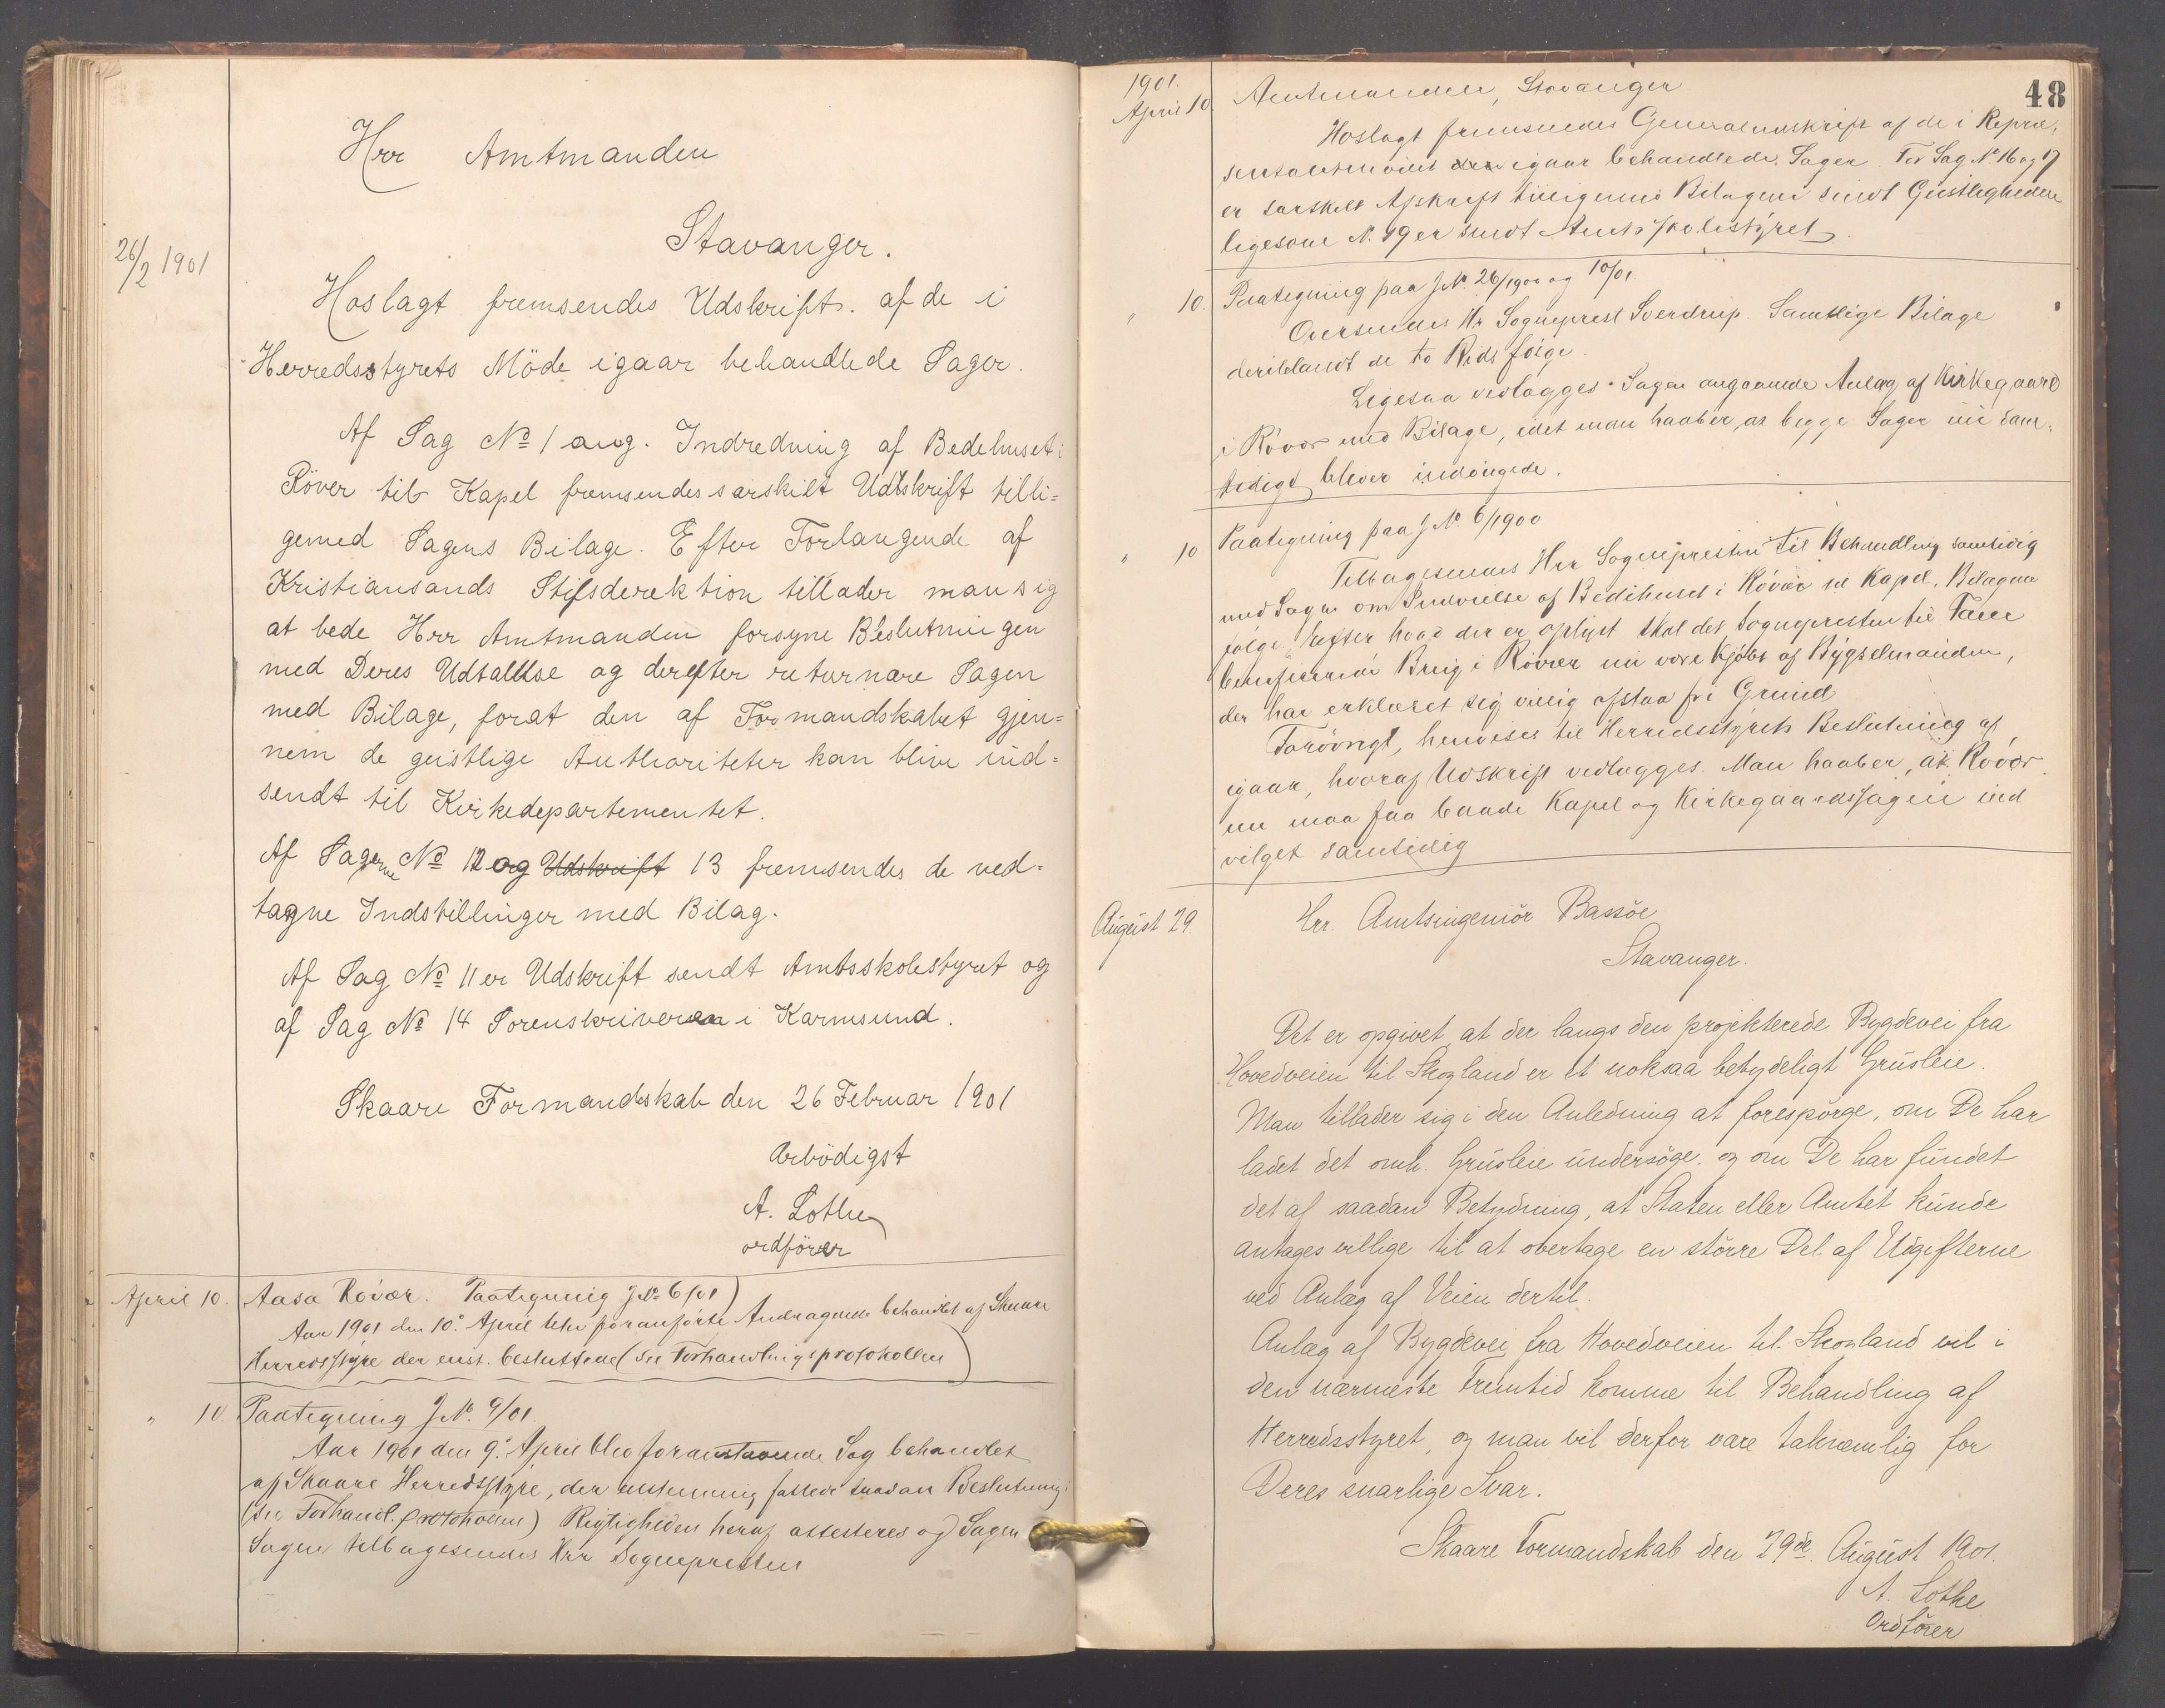 26/2 1901
Hrr Amtmanden
Stavanger.
Hoslagt fremsendes Udskrift. af de i
Herredsstyrets Möde igaar behandlede Sager.
Af Sag No 1 ang. Indredning af Bedehuset i
Röver til Kapel fremsendes særskilt Udtskrift tilli=
gemed Sagens Bilage. Efter Forlangende af
Kristiansands Stifsderektion tillader man sig
at bede Hrr Amtmanden forsyne Beslutningen
med Deres Udtallse og derefter returnare Sagen
med Bilage, forat den af Formandskabet gjen=
nem de geistlige Authoriteter kan blive ind=
sendt til Kirkedepartementet.
Af Sagerne No 12 og Udskrift 13 fremsendes de ved=
tagne Indstillinger med Bilag.
Af Sag No 11 er Udskrift sendt Amtsskolestyret og
af Sag No 14 Sorenskriveren i Karmsund.
Skaare Formandskab den 26 Februar 1901
Ærbödigst
A. Lothe
ordförer
April 10. Aasa Rövær. Paategning J No 6/01)
Aar 1901 den 10. April blev foranförte Andragende behandlet af Skaare
Herredsstyre der enst. besluttede (se Forhandlingsprotokollen)
" 10 Paategning J No. 9/01
Aar 1901 den 9. April blev foranstaaende Sag behandlet
af Skaare Herredsstyre, der enstemmig fattede saadan Beslutning:
(se Forhandl. protokollen) Rigtigheden heraf attesteres og Sagen
Sagen tilbagesendes Hrr Sognepresten
48
1901.
April 10 Amtmanden, Stavanger
Hoslagt fremsendes Generaludskrift af de i Repræ,
sentantmödet den igaar behandlede Sager. For Sag No 16 og 17
er særskilt Afskrift tilligemed Bilagene sendt Geistligheden
ligesom N. 19 er sendt Amtsskolestýret.
" 10. Paategning paa J No. 26/1900 og 10/01
Oversendes Hr Sogneprest Sverdrup. Samtlige Bilage
deriblandt de to Rids fölge.
Ligesaa vedlægges Sagen angaaende Anlæg af Kirkegaard
i Rövær med Bilage, idet man haaber, at begge Sager nu sam,
tidigt bliver indvilgede.
" 10 Paategning paa J No. 6/1900
Tilbagesendes Hrr Sognepresten til Behandling samtidig
med Sagen om Indvielse af Bedehuset i Rövær til Kapel. Bilagene
fölge. Efter hvad der er oplyst skal det Sognepresten til Torvestad
beneficerede Brug i Rövær nu være kjöbt af Býgselmanden,
der har erklæret sig villig afstaa fri Grund
Forövrigt, henvises til Herredsstyrets Beslutning af
igaar, hvoraf Udskrift vedlægges. Man haaber, at Rövær
nu maa faa baade Kapel og Kirkegaardssagen ind
vilget samtidig
August 29. Hrr. Amtsingeniör Bassöe
Stavanger.
Det er opgivet, at der langs den projekterede Bygdevei fra
Hovedveien til Skogland er et noksaa betydeligt Grusleie.
Man tillader sig i den Anledning at forespörge, om De har
ladet det omh. Grusleie undersöge, og om De har fundet
det af saadan Betydning, at Staten eller Amtet kunde
antages villige til at overtage en större Del af Udgifterne
ved Anlæg af Veien dertil.
Anlæg af Bygdevei fra Hovedveien til Skogland vil i
den nærmeste Fremtid komme til Behandling af
Herredsstyret, og man vil derfor være taknemlig for
Deres snarlige Svar.
Skaare Formandskab den 29de. August 1901.
A. Lothe
Ordförer